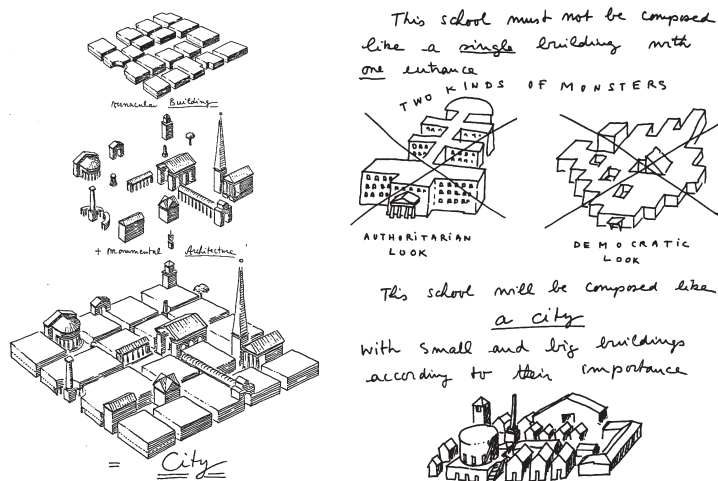 vernacular Building
+ monumental Architecture
= City
This school must not be composed
like a single building with
one entrance
TWO KINDS OF MONSTERS
AUTHORITARIAN
LOOK
DEMOCRATIC
LOOK
This school will be composed like
a city
with small and big buildings
according to their importance